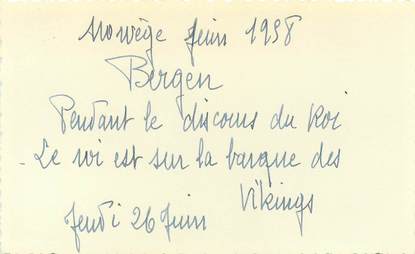 Norvège Juin 1958
Bergen
Pendant le discours du Roi
- Le roi est sur la barque des
Vikings
Jeudi 26 Juin